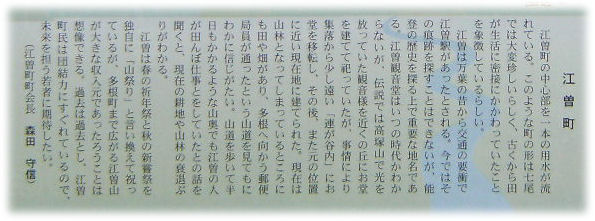 江曽町
江曽町の中心部を一本の用水が流
れている。このような町の形は七尾
では大変珍しいらしく、古くから田
が生活に密接にかかわっていたこと
を象徴しているらしい。
江曽は万葉の昔から交通の要衝で
江曽駅があったとされる。今ではそ
の痕跡を探すことはできないが、能
登の歴史を探る上で重要な地名であ
る。江曽観音堂はいつの時代かわか
らないが、伝説では高塚山で光を
放っていた観音様を近くの丘にお堂
を建てて祀っていたが、事情により
集落から少し遠い「連が谷内」にお
堂を移転し、その後、また元の位置
に近い現在地に建てられた。現在は
山林となってしまっているところに
も田や畑があり、多根へ向かう郵便
局員が通ったという山道を見てもに
わかに信じがたい。山道を歩いて半
日もかかるような山奥でも江曽の人
が田んぼ仕事とをしていたとの話を
聞くと、現在の耕地や山林の衰退ぶ
りがわかる。
江曽は春の祈年祭と秋の新嘗祭を
独自に「山祭り」と言い換えて祝っ
ているが、多根町まで広がる江曽山
が大きな収入元であったろうことは
想像できる。過去は過去とし、江曽
町民は団結力にすぐれているので、
未来を担う若者に期待したい。
(江曽町町会長 森田 守信)